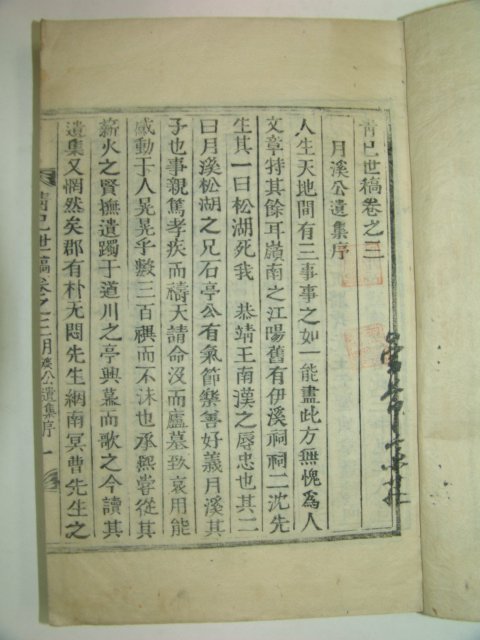 靑巳世稿卷之三
月溪公遺集序
人生天地間有三事事之如一能盡此方無愧爲人
文章特其餘耳嶺南之江陽舊有伊溪祠祠二沈先
生其一曰松湖死我 恭靖王南漢之辱忠也其二
曰月溪松湖之兄石亭公有氣節樂善好義月溪其
子也事親篤孝疾而禱天請命沒而廬墓致哀用能
感動于人晃晃乎數三百禩而不沬也承熙嘗從其
薪火之賢撫遺躅于道川之亭興慕而歌之今讀其
遺集又惘然矣郡有朴无悶先生綱南冥曹先生之
靑巳世稿卷之三月溪公遺集序 一